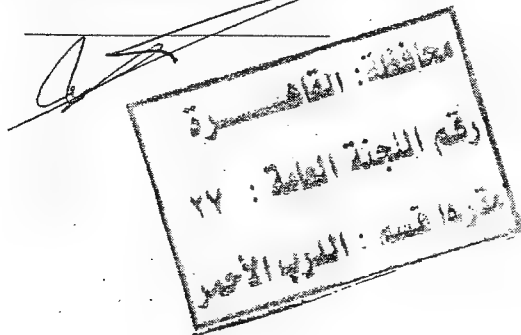 محافظة : القاهـــــرة
رقم اللجنة العامة : ٢٧
مقرها قسم : الدرب الأحمر